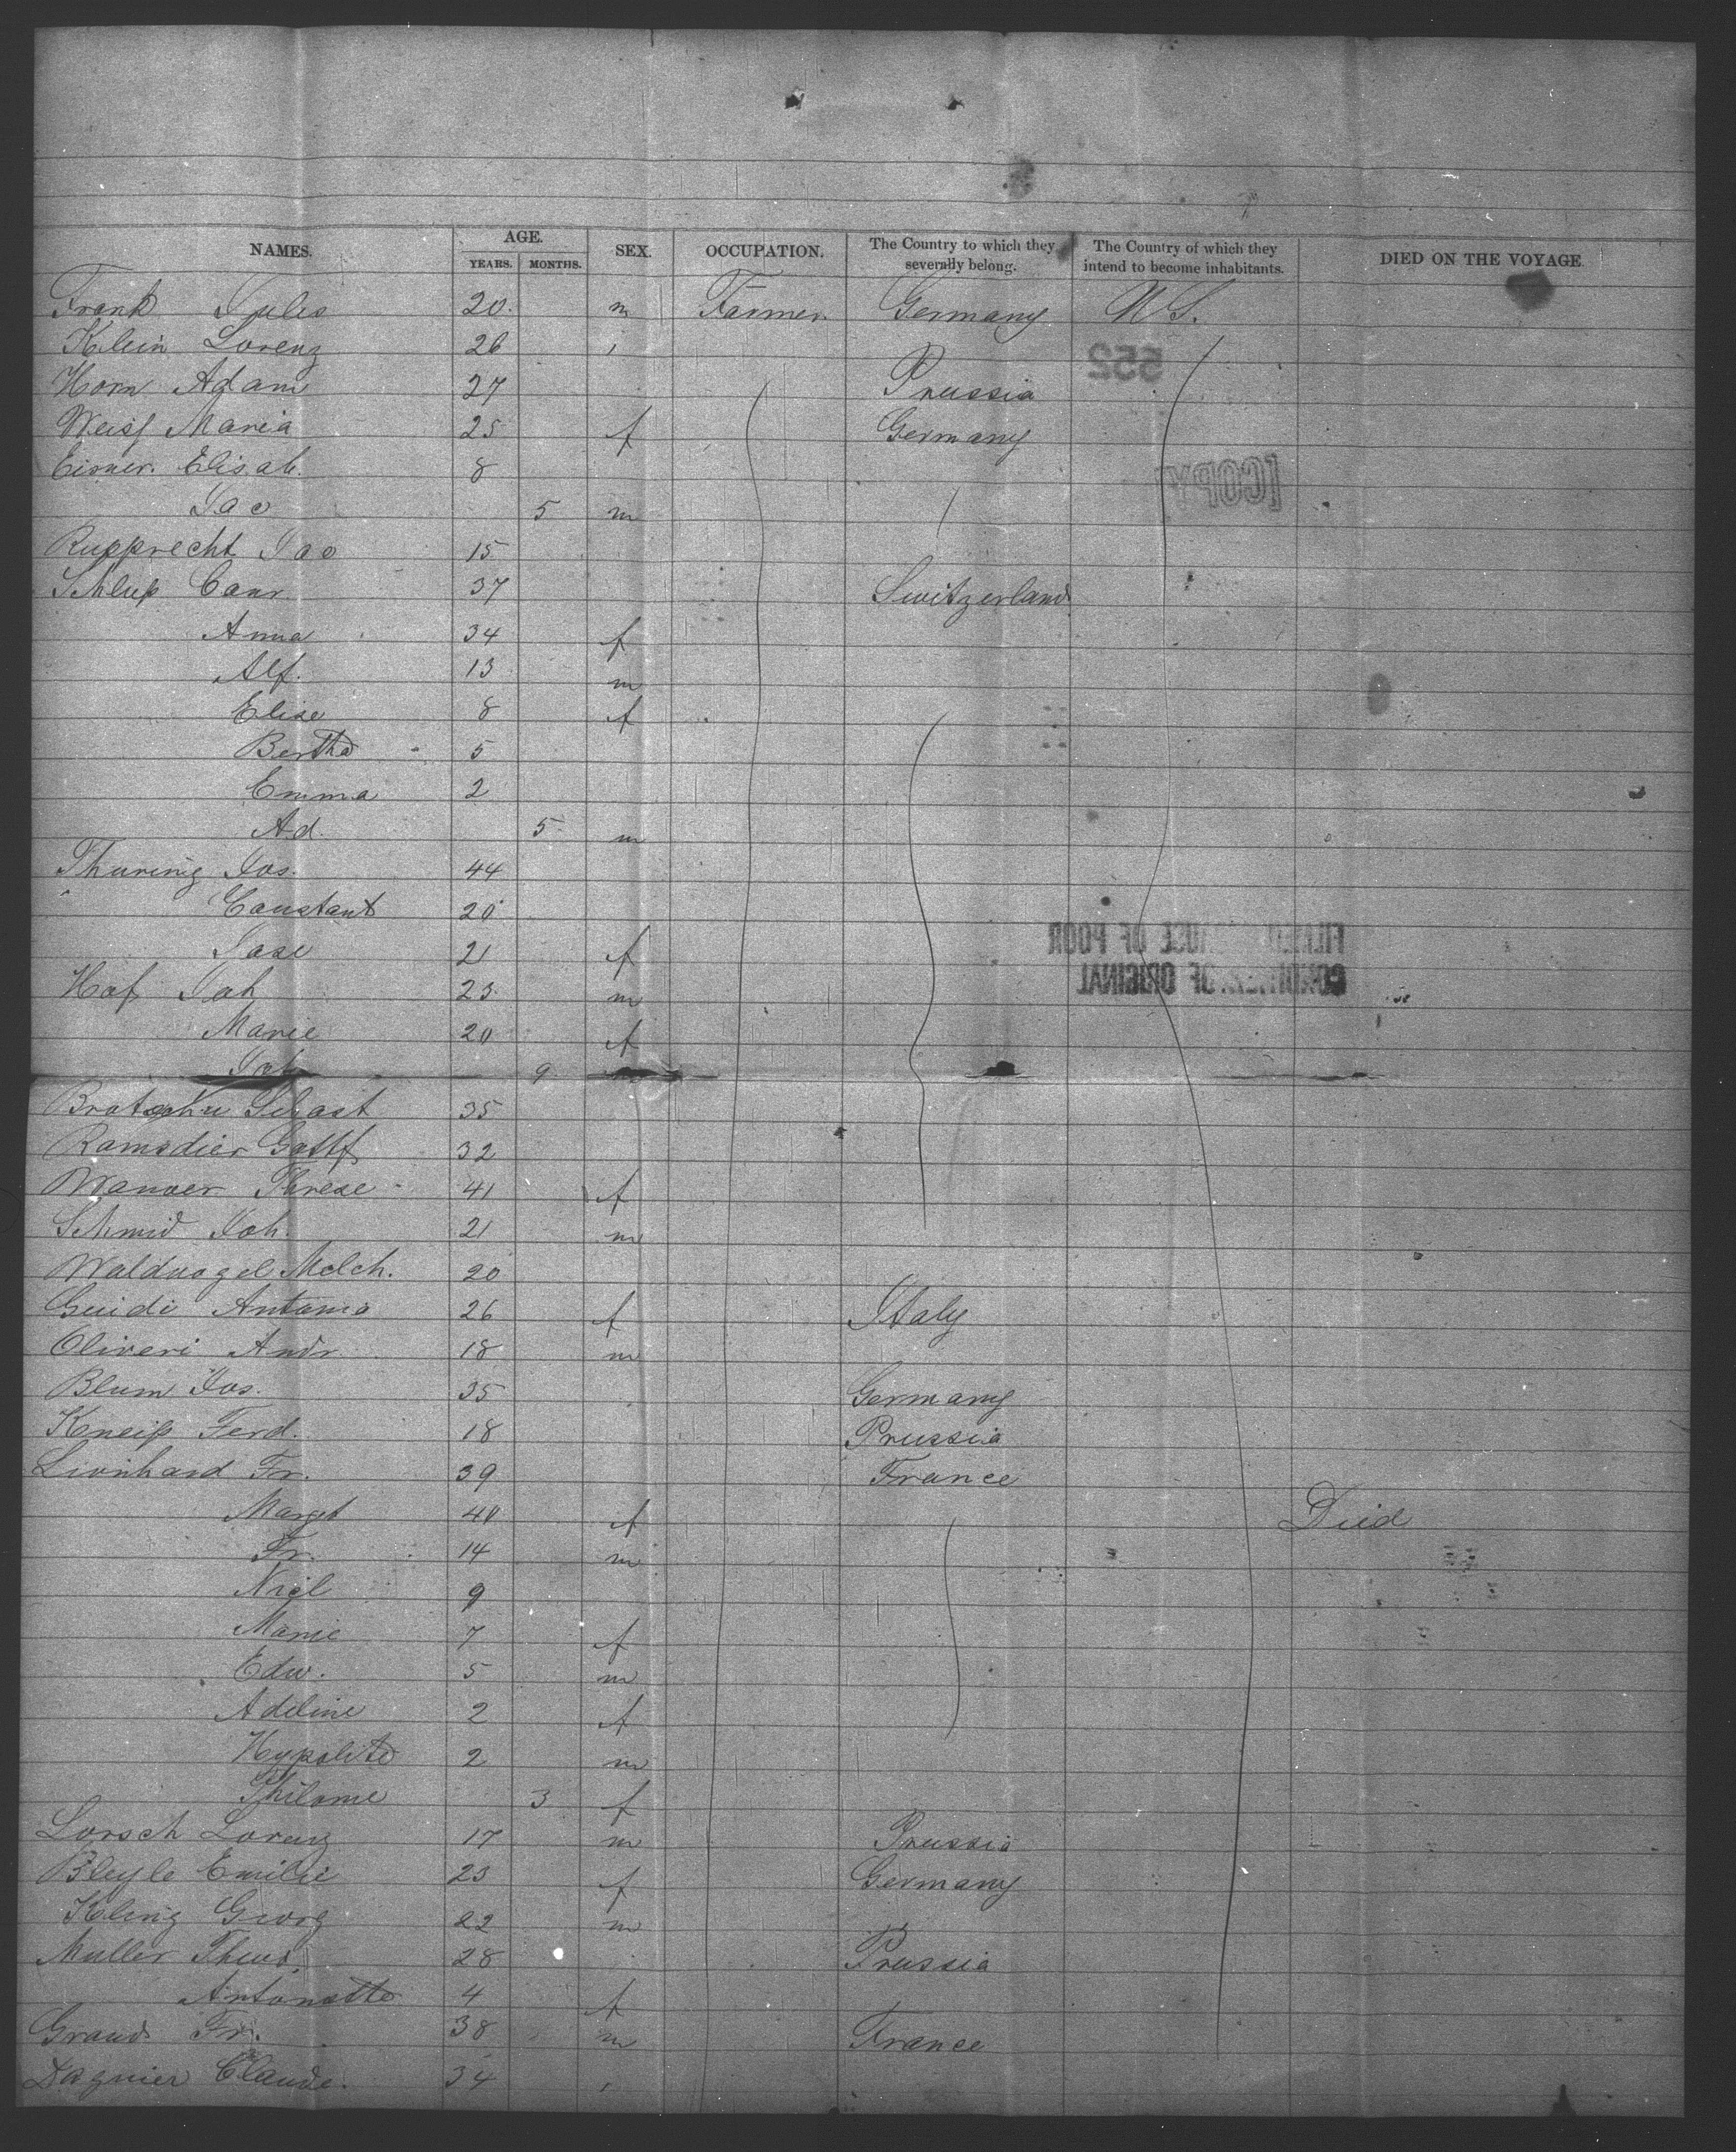 NAMES. AGE. SEX. OCCUPATION. The Country to which they severally belong. The Country of which they intend to become inhabitants. DIED ON THE VOYAGE
YEARS. MONTHS.
Frank Jules 20. m Farmer. Germany U S.
Klein Lorenz 26 "
552
Horn Adam 27 Prussia
Weiss Maria 25 f Germany
Eisner. Elisab. 8
[COPY
Jac 5 m
Rupprecht Jac 15
Schlup Conr 37 Switzerland
Anna 34 f
Alf. 13 m
Elise 8 f
Bertha 5
Emma 2
Ad. 5 m
Thuring Jos. 44
" Constant 20
FILMED OF POOR
21 f
CONDITION OF ORIGINAL
Hof Joh 23. m
Marie 20 f
Joh 9 m
Sebast 35
Ramsdier Gottf 32
Wanner Threse 41 f
Schmid Joh. 21 m
Waldvogel Melch. 20
Guidi Antonia 26 f Italy
Oliveri Andr. 18 m
Blum Jos. 35 Germany
Kneip Ferd. 18 Prussia
Lionhard Fr. 39 France
Margt 40 f Died
Fr. 14 m
9
Marie 7 f
Edw. 5 m
Adeline 2 f
Hypolite 2 m
Philome 3 f
Lorsch Lorenz 17 m Prussia
Bleyle Emilie 23 f Germany
Kling Georg 22 m
Muller Theod. 28 Prussia
Antonette 4 f
Grand Fr. 38 m France
Dagnier Claude. 34 "